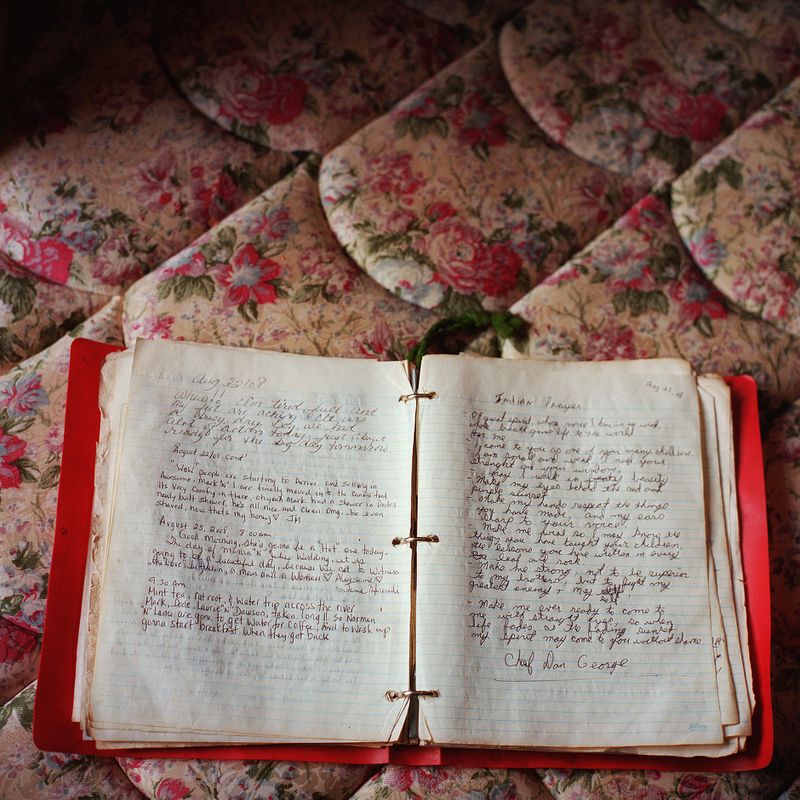 Aug 22/08
Whew!! I'm tired, full and
my feet are aching. It was
a busy day boy, we had
alot of action today just about
ready for the big day tommorrow
August 22/08 Cont'
"Wow" people are starting to Derive and Settling in
Awesome. Mark 'N' I are finally moved up to the Cabins that
its very Comfy in there, oh yeah Mark had a shower in
newly built shower, he's all nice and Clean. Omg he even
shaved, now thats my honey ♡ JM
August 23, 2008 8:00am
Good Morning, She's gonna be a "Hot" one today.
The day of 'N' wedding. et is
going to be a beautiful day, because we get to witness
the Love between a man and a Woman ♡ Awesome ♡
9:30 am
Mint tea, rat root, & Water trip across the river
Mark, Laurie 'N' Dawson, taken long!! So Norman
N' Lance are gone to get Water for Coffee, And to Wash up
gonna start breakfast when they get back
Aug 23-08
Indian Prayer
- O great spirit, whose voice I hear in the wind,
whose breath gave life to the world
Hear me
- I come to you as one of your many children
I am small and weak I need your
strenght and your wisdom.
- May I walk in beauty
- Make my eyes behold the red and
purple sunset
- Make my hands respect the things
you have made, and my ears
sharp to your voice.
- Make me wise so I may know the
things you have taught your children,
the lessons you have written in every
leaf and rock
- Make me strong, not to be superior
to my brothers, but to fight my
greatest enemy - My self
- Make me ever ready to come to
you with straight eyes, so when
Life fades as the fading sunset
my spirit may come to you without shame.
Chief Dan George
Hilroy